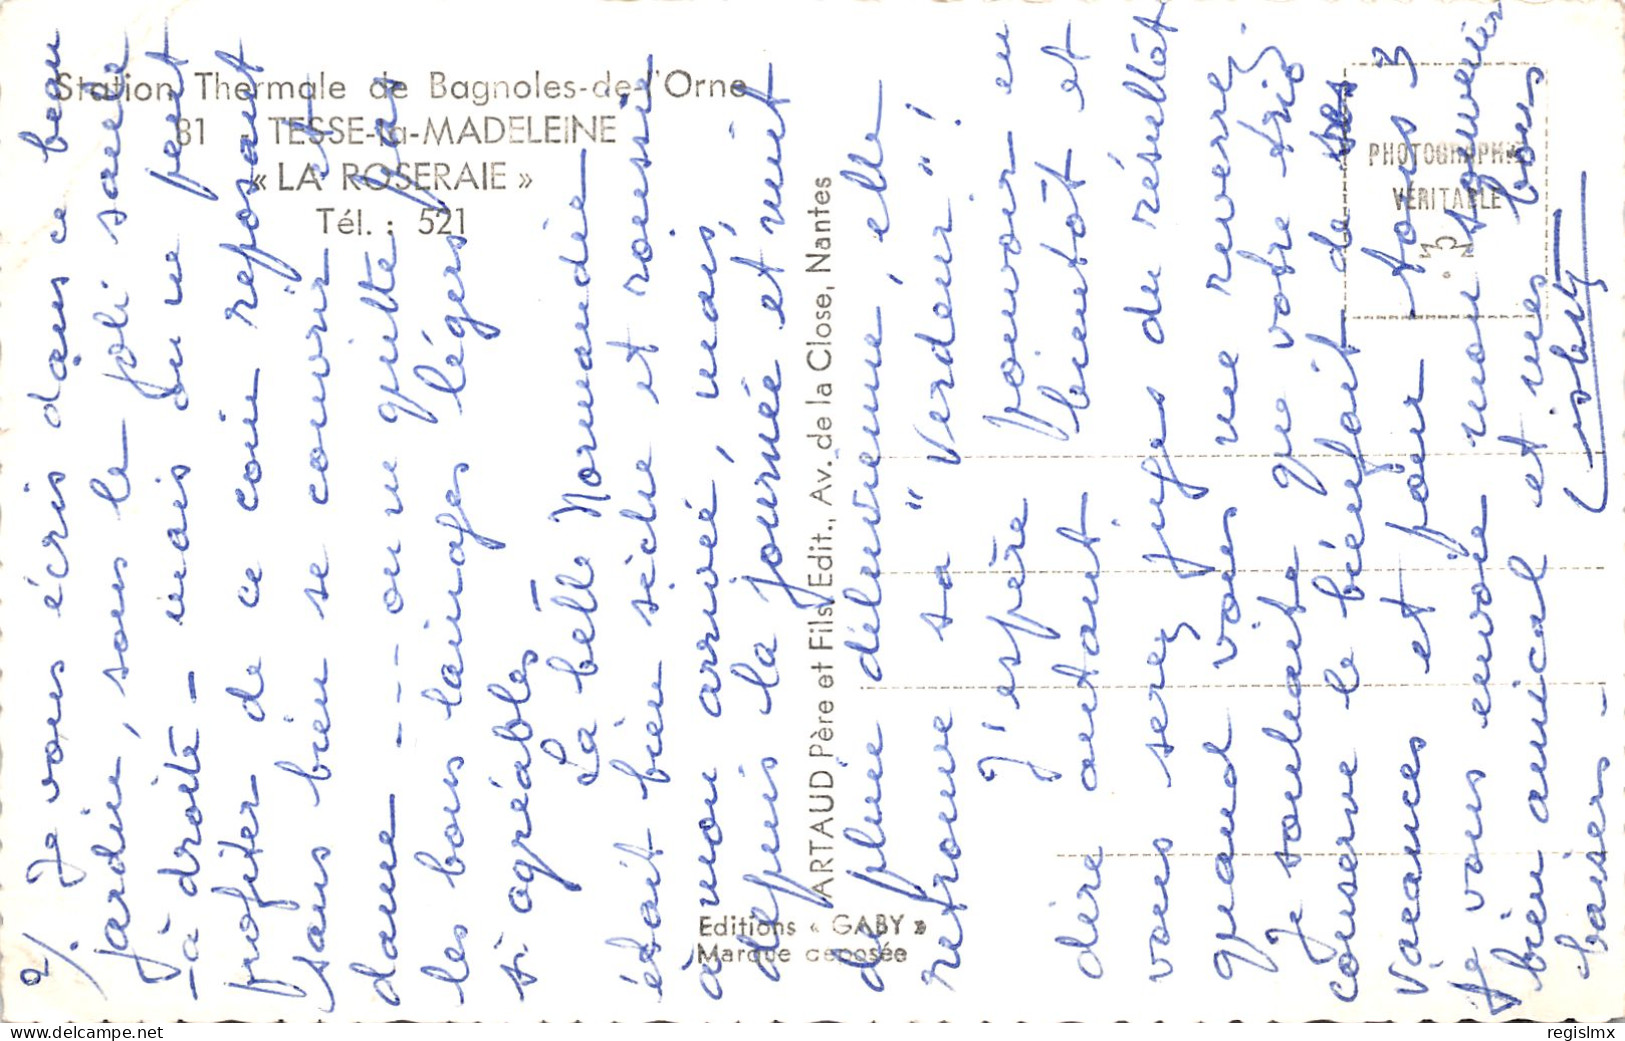 Station Thermale de Bagnoles-de-l'Orne
81 - TESSE-la-MADELEINE
« LA ROSERAIE »
Tél. : 521
ARTAUD Père et Fils, Edit., Av. de la Close, Nantes
Editions « GABY »
Marque déposée
PHOTOGRAPHIE
VERITABLE
2/. Je vous écris dans ce beau
jardin, sous le joli saule
- à droite - mais on ne peut
profiter de ce coin reposant
sans bien se couvrir et
dame --- on ne quitte pas
les bons lainages légers
si agréables -
La belle Normandie
était bien sèche et roussie
à mon arrivée, mais,
depuis la journée et nuit
de pluie diluvienne, elle
retrouve sa "verdeur" !
J'espère pouvoir en
dire autant bientôt et
vous serez juges du résultat
quand vous me reverrez.
Je souhaite que votre trio
conserve le bienfait de ses
vacances et pour tous 3
je vous envoie mon souvenir
bien amical et mes bons
baisers -
regislmx